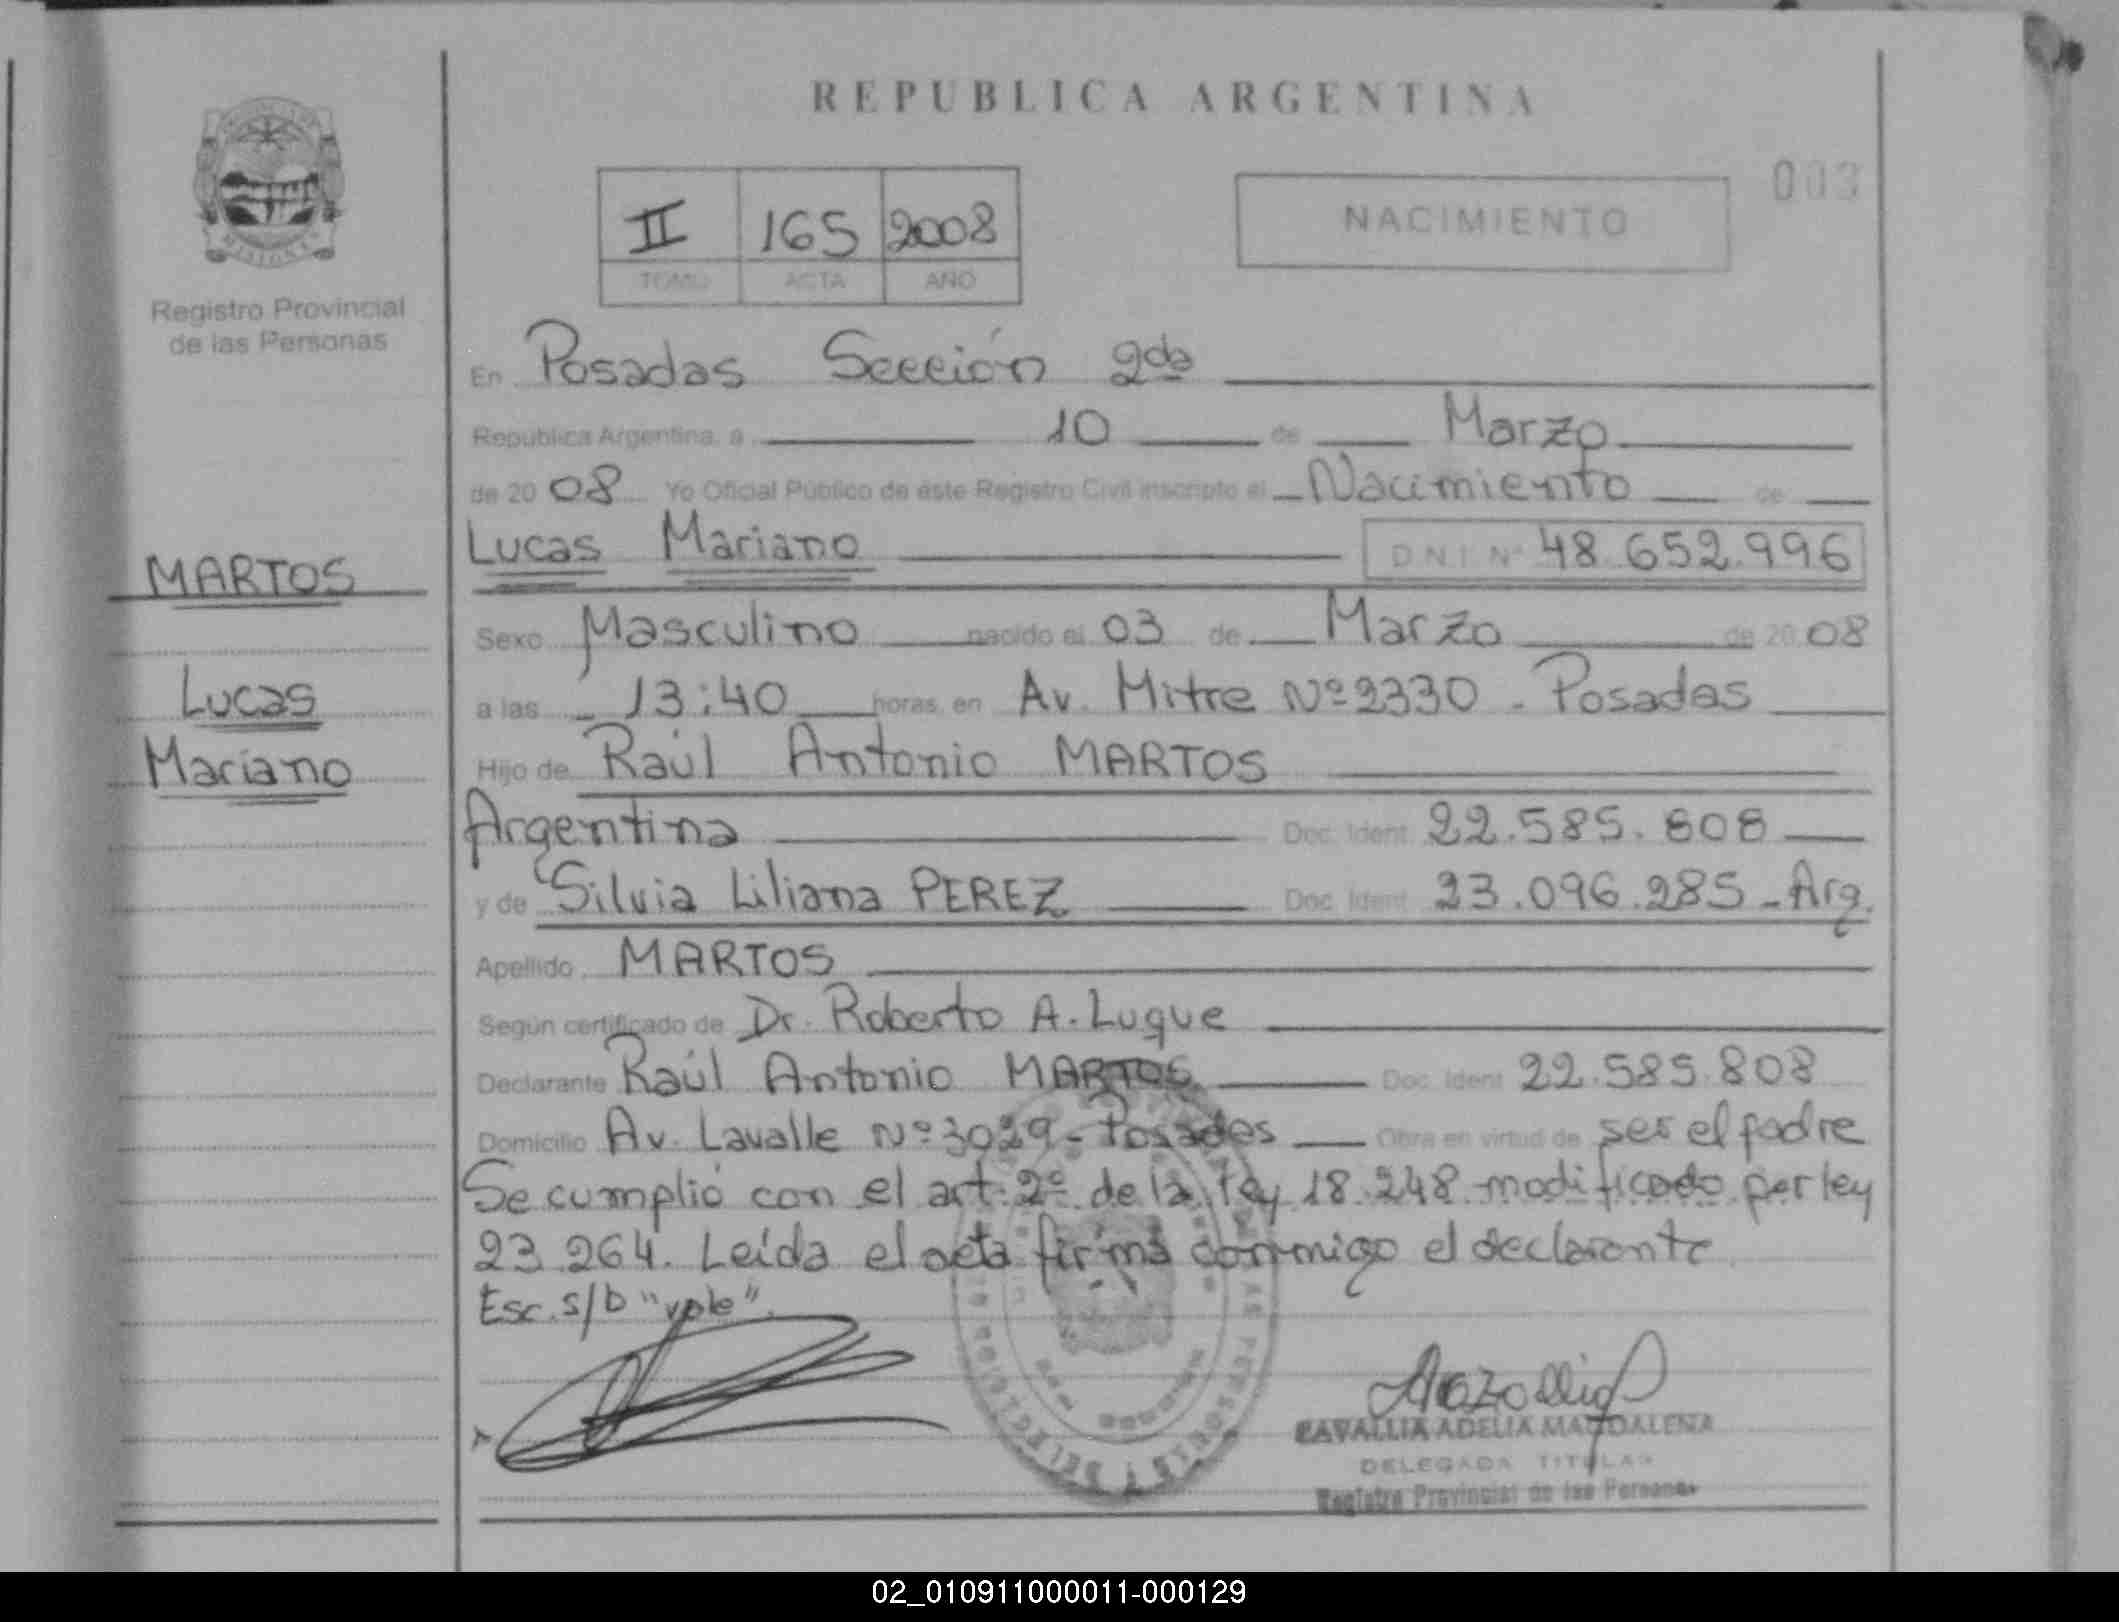 REPUBLICA ARGENTINA
003
II 165 2008
TOMO ACTA AÑO
NACIMIENTO
Registro Provincial
de las Personas
En Posadas Sección 2da
República Argentina, a 10 de Marzo
de 2008 Yo Oficial Público de éste Registro Civil inscripto el Nacimiento de
Lucas Mariano DNI Nº 48.652.996
MARTOS
Lucas
Mariano
Sexo Masculino nacido el 03 de Marzo de 2008
a las 13:40 horas, en Av. Mitre Nº 2330 - Posadas
Hijo de Raúl Antonio MARTOS
Argentina Doc. Ident. 22.585.808
y de Silvia Liliana PEREZ Doc. Ident. 23.096.285 - Arg.
Apellido MARTOS
Según certificado de Dr. Roberto A. Luque
Declarante Raúl Antonio MARTOS Doc. Ident. 22.585.808
Domicilio Av. Lavalle Nº 3029 - Posadas Obra en virtud de ser el padre
Se cumplió con el art. 2º de la ley 18.248 modificado por ley
23.264. Leída el acta firma conmigo el declarante
Esc. s/b
CAVALLIA ADELIA MAGDALENA
DELEGADA TITULAR
Registro Provincial de las Personas
02_010911000011-000129